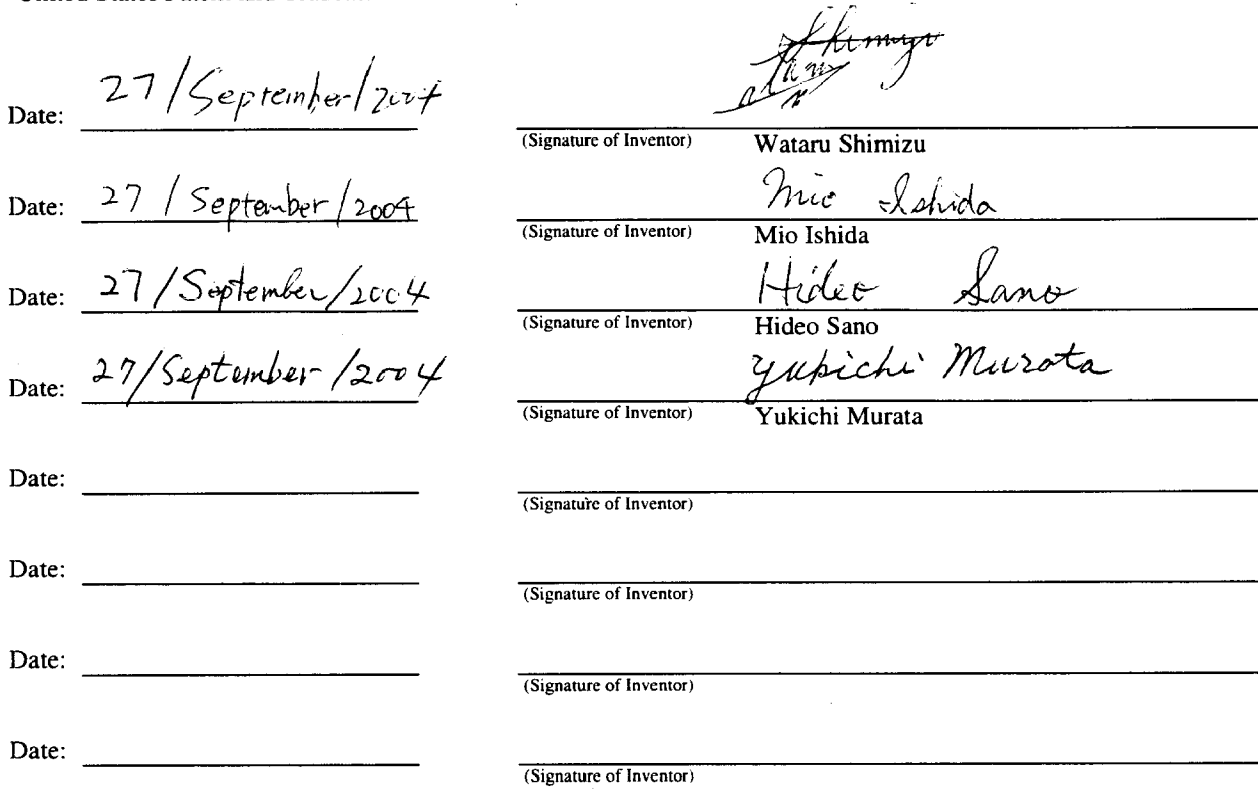 Date: 27/September/2004
(Signature of Inventor) Wataru Shimizu
Date: 27/September/2004 Mio Ishida
(Signature of Inventor) Mio Ishida
Date: 27/September/2004 Hideo Sano
(Signature of Inventor) Hideo Sano
Date: 27/September/2004 Yukichi Murata
(Signature of Inventor) Yukichi Murata
Date:
(Signature of Inventor)
Date:
(Signature of Inventor)
Date:
(Signature of Inventor)
Date:
(Signature of Inventor)